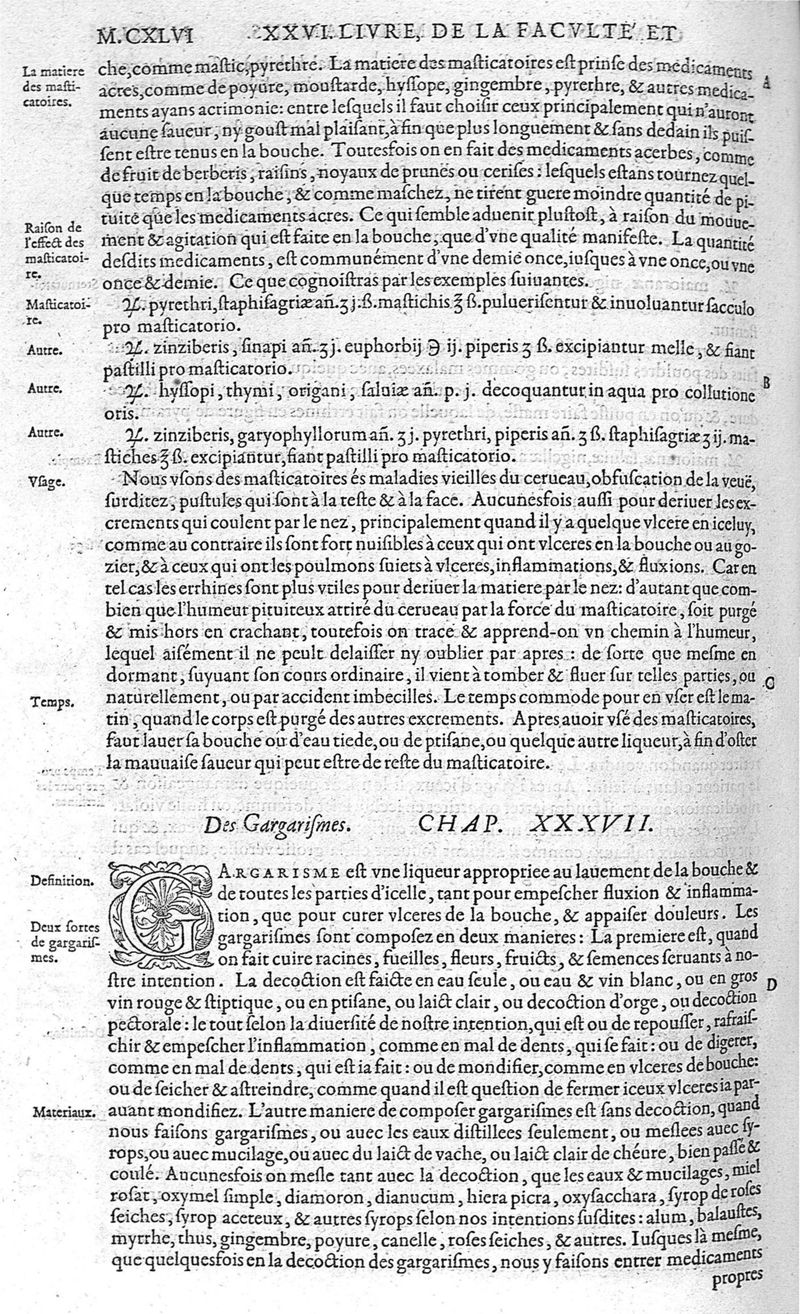 M.CXLVI XXVI. LIVRE, DE LA FACVLTÉ ET
La matiere
des masti-
catoires.
che, comme mastic, pyrethre. La matiere des masticatoires est prinse des medicaments
acres, comme de poyure, moustarde, hyssope, gingembre, pyrethre, & autres medica-
A
ments ayans acrimonie: entre lesquels il faut choisir ceux principalement qui n'auront
aucune saueur, ny goust mal plaisant, à fin que plus longuement & sans dedain ils puis-
sent estre tenus en la bouche. Toutesfois on en fait des medicaments acerbes, comme
de fruit de berberis, raisins, noyaux de prunes ou cerises: lesquels estans tournez quel-
que temps en la bouche, & comme maschez, ne tirent guere moindre quantité de pi-
tuité que les medicaments acres. Ce qui semble aduenir plustost, à raison du mouue-
Raison de
l'effect des
masticatoi-
re.
ment & agitation qui est faite en la bouche, que d'vne qualité manifeste. La quantité
desdits medicaments, est communément d'vne demie once, iusques à vne once, ou vne
once & demie. Ce que cognoistras par les exemples suiuantes.
Masticatoi-
re.
℞. pyrethri, staphisagriæ añ. ʒ j. ß. mastichis ℥ ß. puluerisentur & inuoluantur sacculo
pro masticatorio.
Autre.
℞. zinziberis, sinapi añ. ʒ j. euphorbij ℈ ij. piperis ʒ ß. excipiantur melle, & fiant
pastilli pro masticatorio.
Autre.
℞. hyssopi, thymi, origani, saluiæ añ. p. j. decoquantur in aqua pro collutione
B
oris.
Autre.
℞. zinziberis, garyophyllorum añ. ʒ j. pyrethri, piperis añ. ʒ ß. staphisagriæ ʒ ij. ma-
stiches ℥ ß. excipiantur, fiant pastilli pro masticatorio.
Vsage.
Nous vsons des masticatoires és maladies vieilles du cerueau, obfuscation de la veuë,
surditez, pustules qui sont à la teste & à la face. Aucunesfois aussi pour deriuer les ex-
crements qui coulent par le nez, principalement quand il y a quelque vlcere en iceluy,
comme au contraire ils sont fort nuisibles à ceux qui ont vlceres en la bouche ou au go-
zier, & à ceux qui ont les poulmons suiets à vlceres, inflammations, & fluxions. Car en
tel cas les errhines sont plus vtiles pour deriuer la matiere par le nez: d'autant que com-
bien que l'humeur pituiteux attiré du cerueau par la force du masticatoire, soit purgé
& mis hors en crachant, toutefois on trace & apprend-on vn chemin à l'humeur,
lequel aisément il ne peult delaisser ny oublier par apres: de sorte que mesme en
dormant, suyuant son cours ordinaire, il vient à tomber & fluer sur telles parties, ou
C
Temps.
naturellement, ou par accident imbecilles. Le temps commode pour en vser est le ma-
tin, quand le corps est purgé des autres excrements. Apres auoir vsé des masticatoires,
faut lauer sa bouche ou d'eau tiede, ou de ptisane, ou quelque autre liqueur, à fin d'oster
la mauuaise saueur qui peut estre de reste du masticatoire.
Des Gargarismes. CHAP. XXXVII.
Definition.
GARGARISME est vne liqueur appropriee au lauement de la bouche &
de toutes les parties d'icelle, tant pour empescher fluxion & inflamma-
tion, que pour curer vlceres de la bouche, & appaiser douleurs. Les
Deux sortes
de gargaris-
mes.
gargarismes sont composez en deux manieres: La premiere est, quand
on fait cuire racines, fueilles, fleurs, fruicts, & semences seruants à no-
stre intention. La decoction est faicte en eau seule, ou eau & vin blanc, ou en gros
D
vin rouge & stiptique, ou en ptisane, ou laict clair, ou decoction d'orge, ou decoction
pectorale: le tout selon la diuersité de nostre intention, qui est ou de repousser, rafrais-
chir & empescher l'inflammation, comme en mal de dents, qui se fait: ou de digerer,
comme en mal de dents, qui est ia fait: ou de mondifier, comme en vlceres de bouche:
ou de seicher & astreindre, comme quand il est question de fermer iceux vlceres ia par-
Materiaux.
auant mondifiez. L'autre maniere de composer gargarismes est sans decoction, quand
nous faisons gargarismes, ou auec les eaux distillees seulement, ou meslees auec sy-
rops, ou auec mucilage, ou auec du laict de vache, ou laict clair de chéure, bien passé &
coulé. Aucunesfois on mesle tant auec la decoction, que les eaux & mucilages, miel
rosat, oxymel simple, diamoron, dianucum, hiera picra, oxysacchara, syrop de roses
seiches, syrop aceteux, & autres syrops selon nos intentions susdites: alum, balaustes,
myrrhe, thus, gingembre, poyure, canelle, roses seiches, & autres. Iusques là mesme,
que quelquesfois en la decoction des gargarismes, nous y faisons entrer medicaments
propres